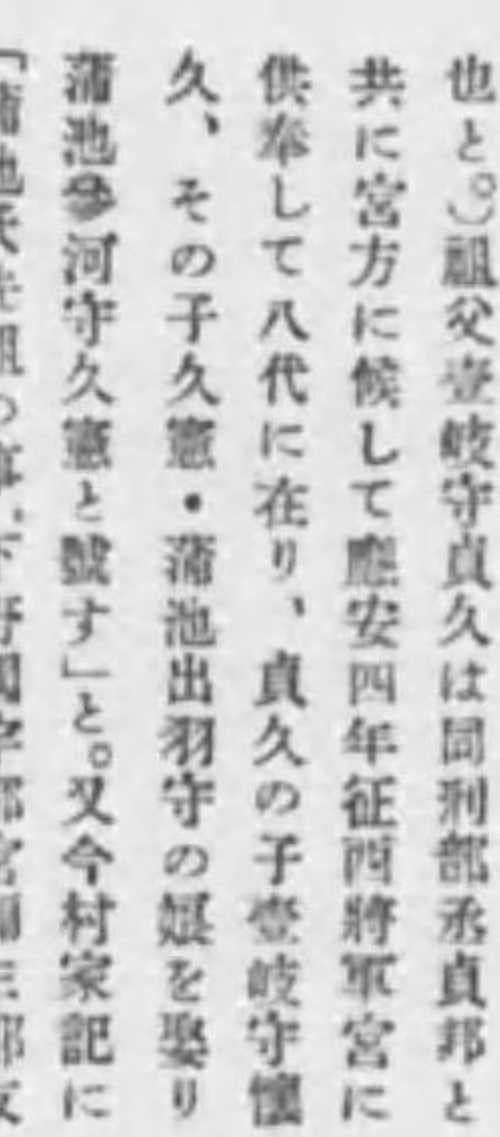 也と。)祖父壹岐守貞久は同刑部丞貞邦と
共に宮方に候して應安四年征西將軍宮に
供奉して八代に在り、貞久の子壹岐守懷
久、その子久憲・蒲池出羽守の娘を娶り
蒲池參河守久憲と號す」と。又今村家記に